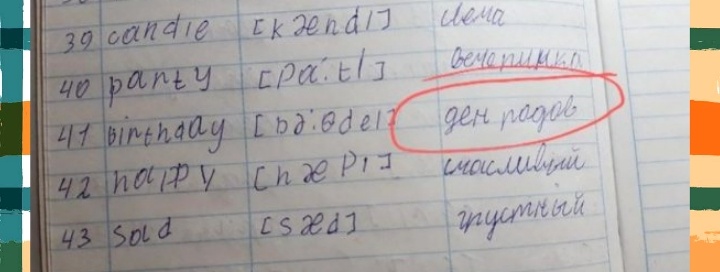 39 candle [kændl] свеча
40 party [pa:tI] вечеринка
41 birthday [bə:θdeI] ден родов
42 happy [hæpI] счасливый
43 sad [sæd] грустный